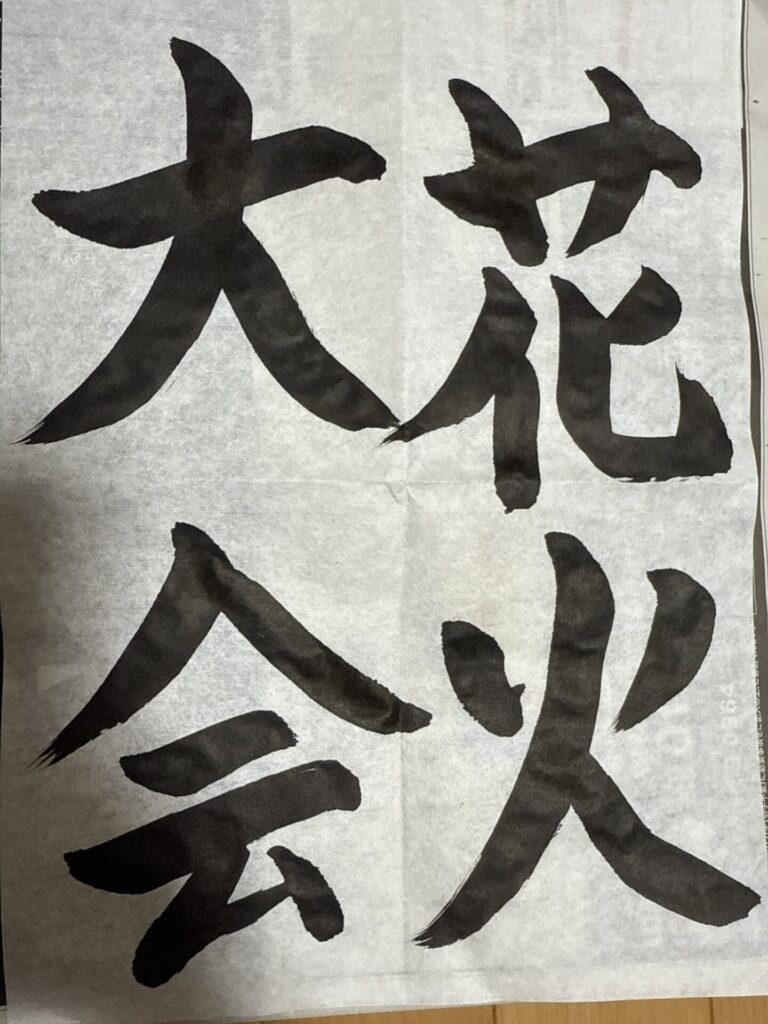 花火
大会